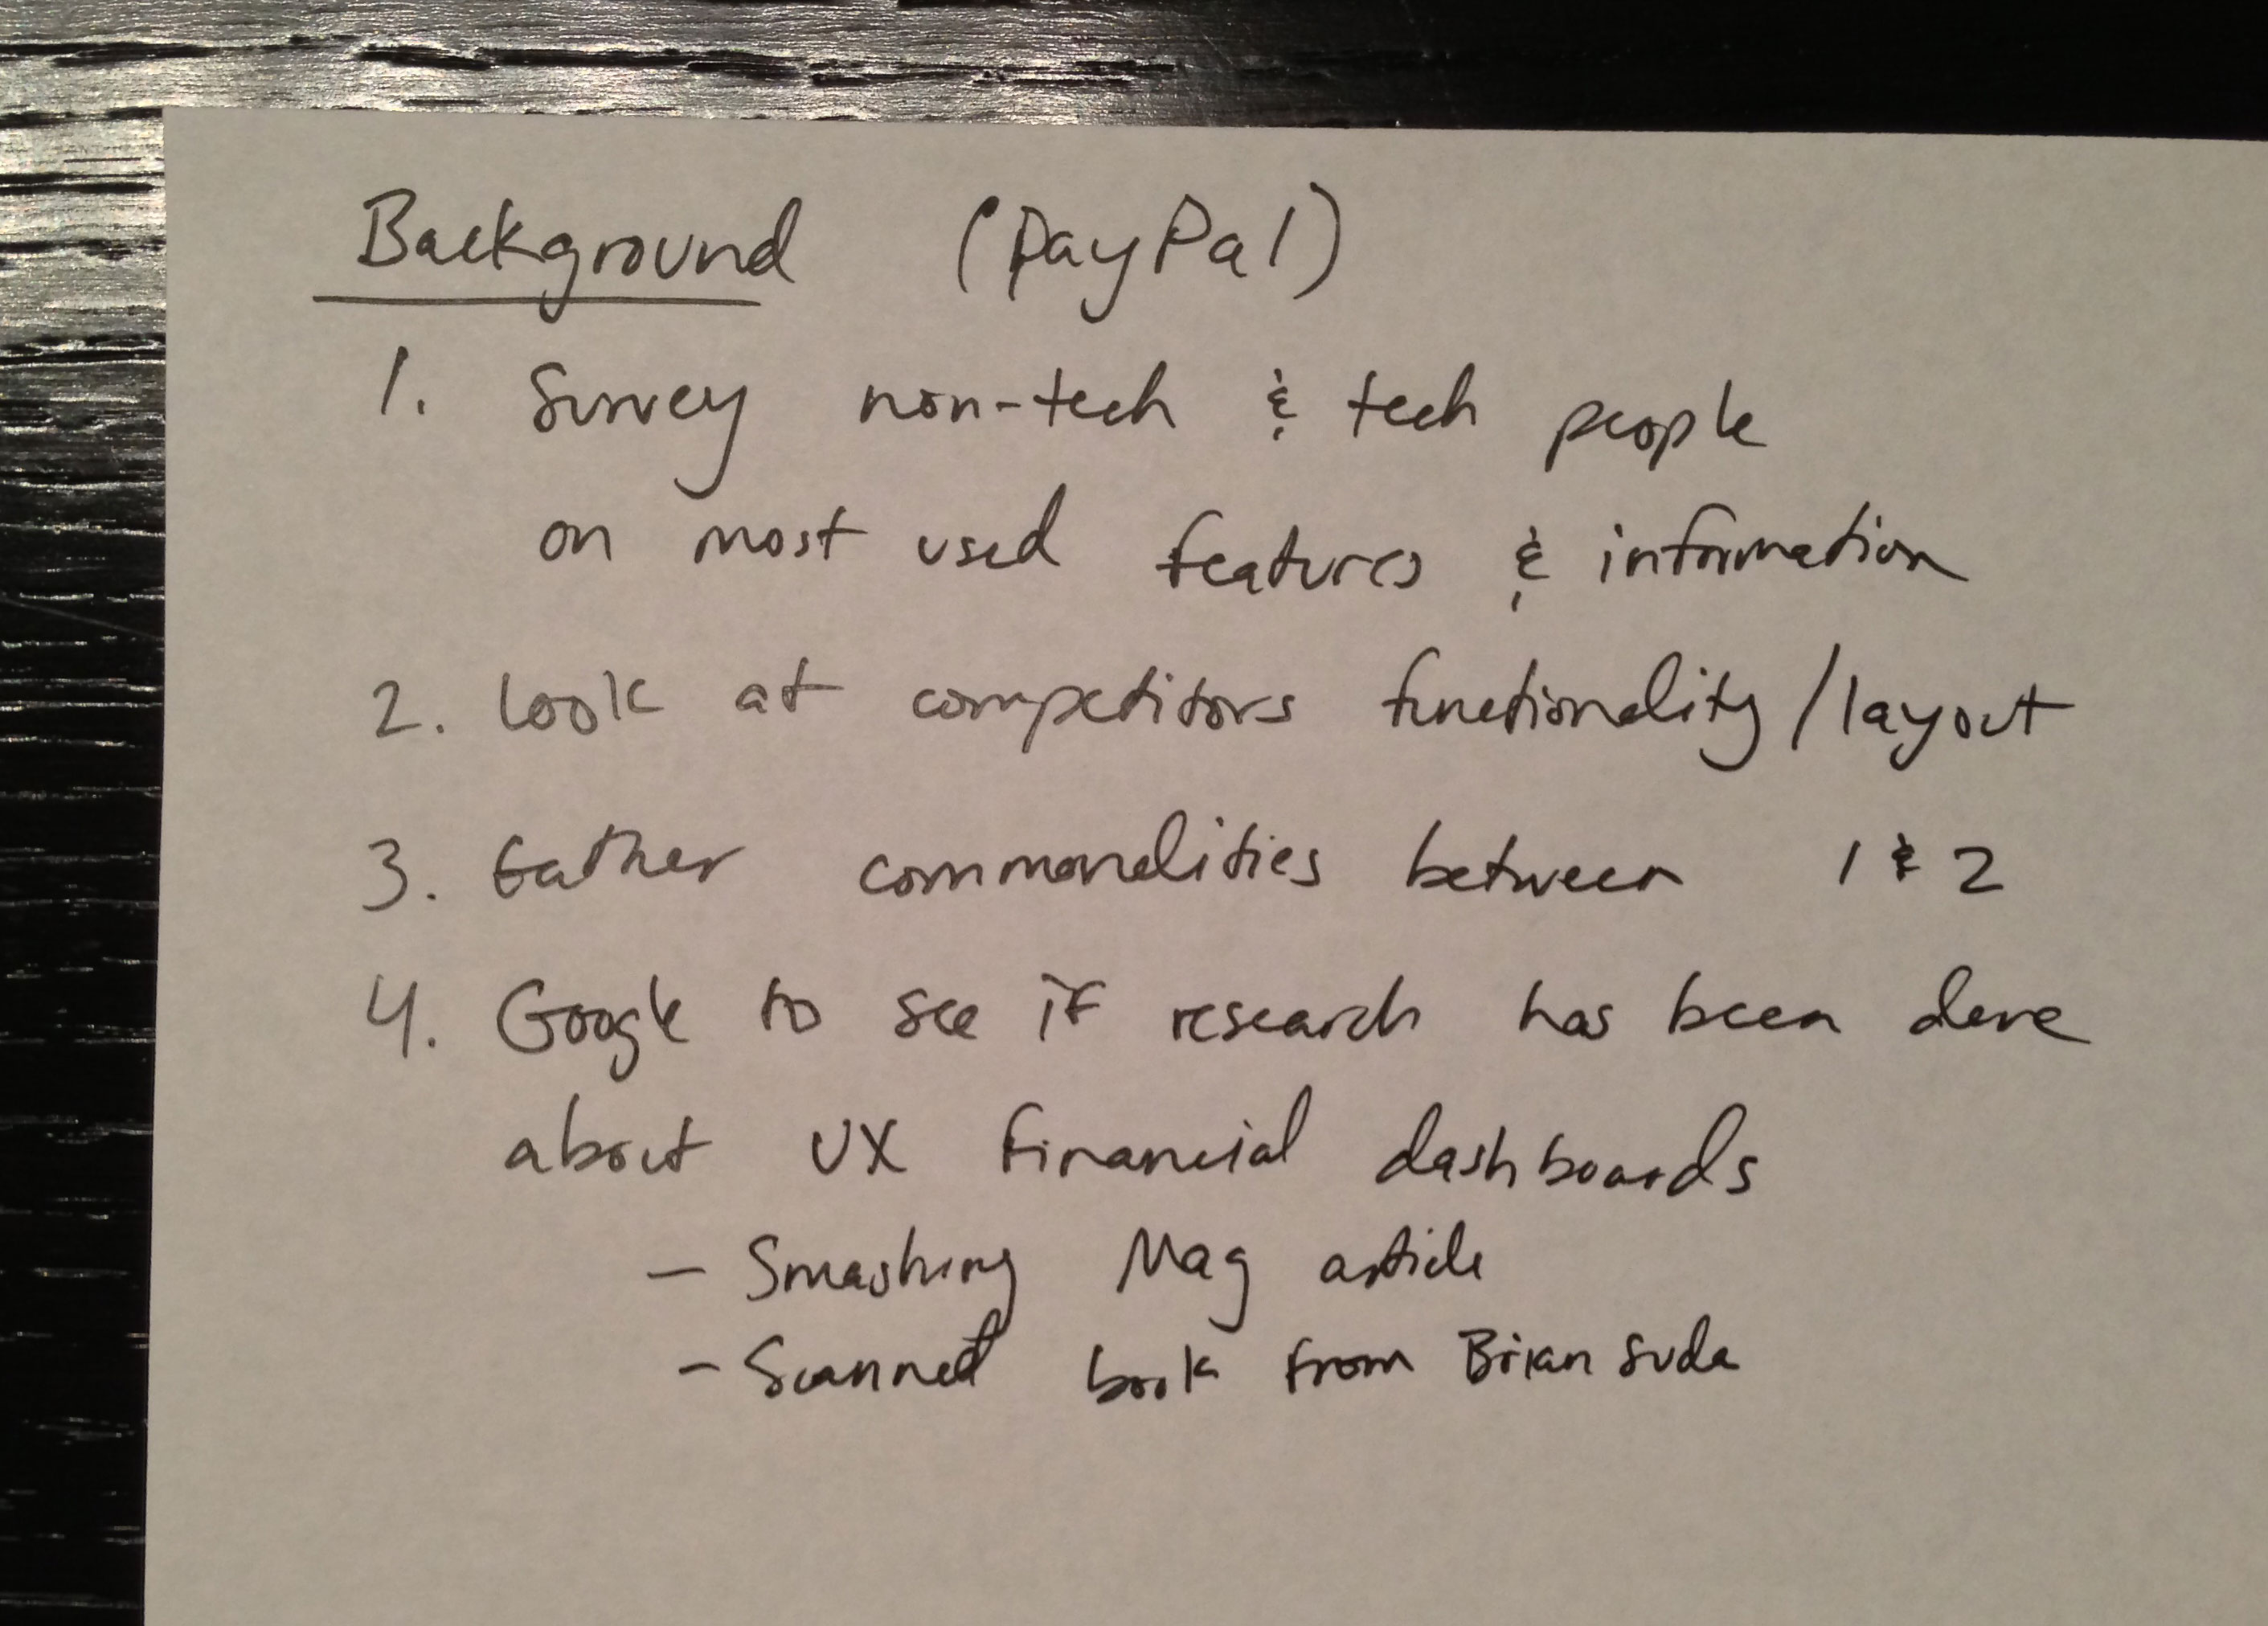 Background (PayPal)
1. Survey non-tech & tech people
on most used features & information
2. Look at competitors functionality/layout
3. Gather commonalities between 1 & 2
4. Google to see if research has been done
about UX financial dashboards
- Smashing Mag article
- Scanned book from Brian Suda